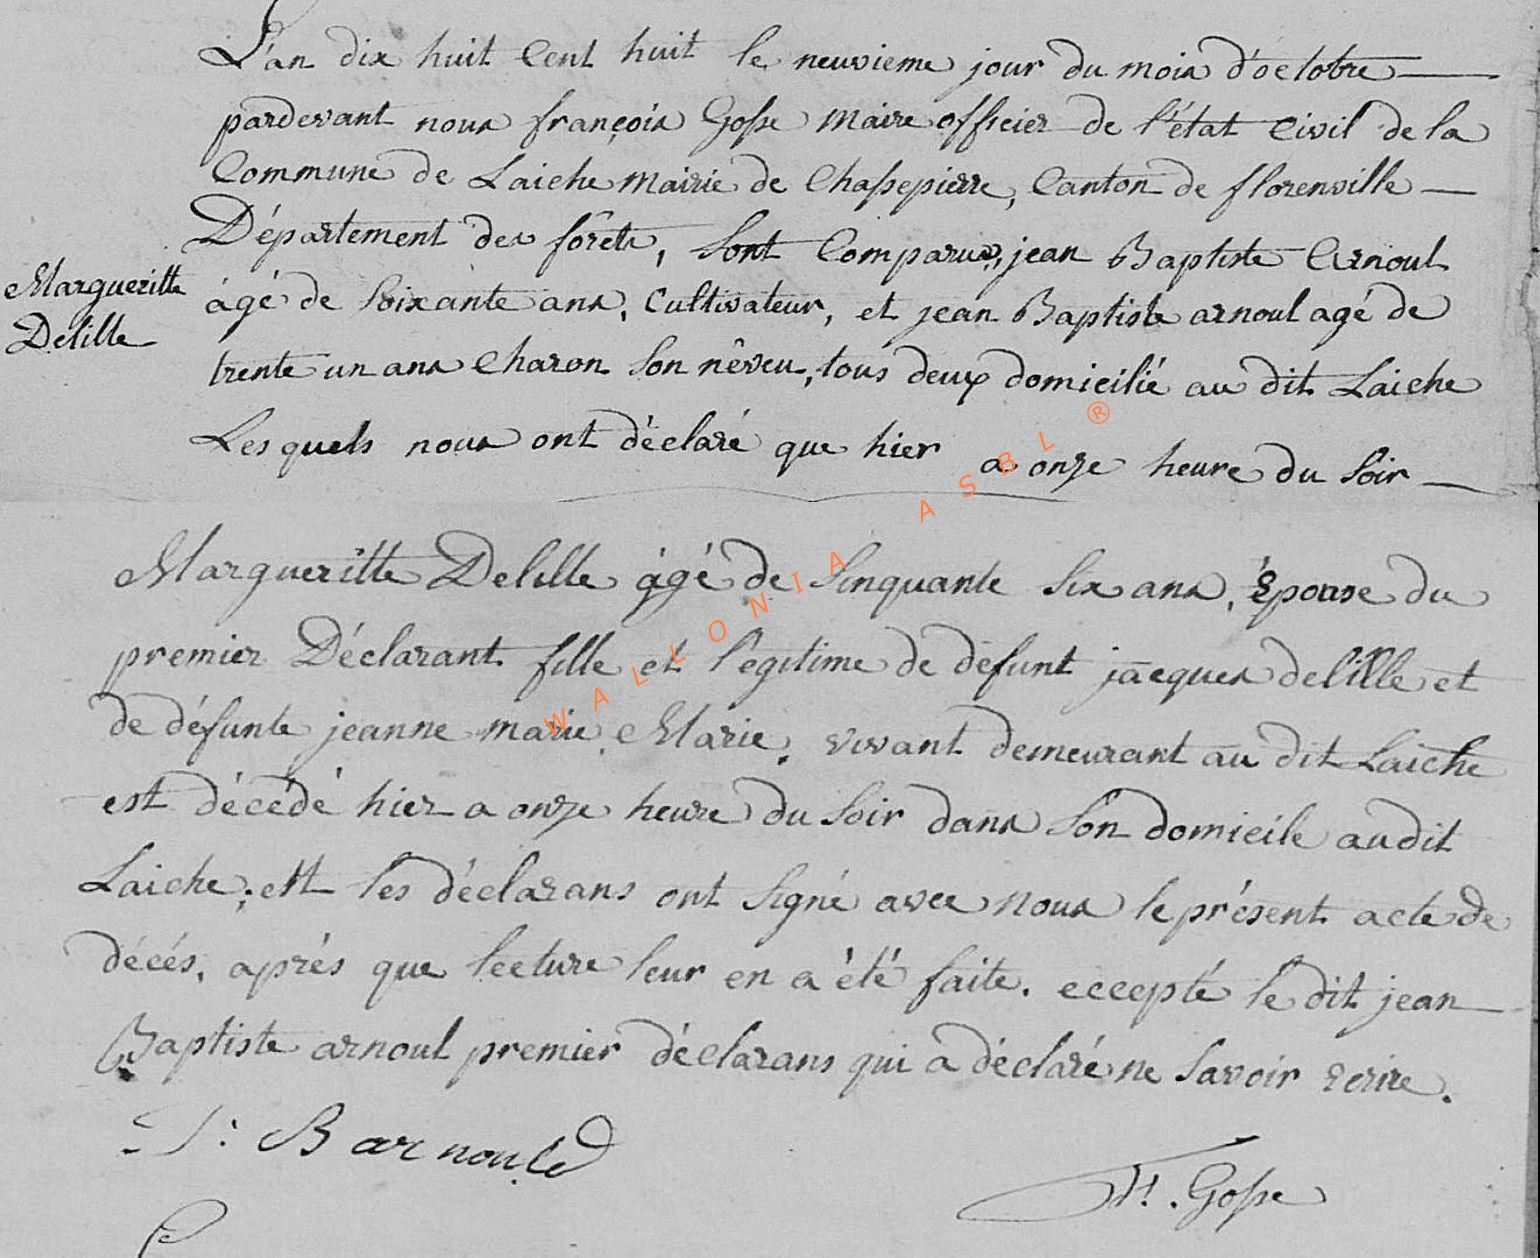 L'an dix huit Cent huit le neuvieme jour du mois d'octobre
pardevant nous françois Gosse Maire officier de l'état Civil de la
Commune de Laiche Mairie de Chassepierre, Canton de florenville
Département des forêts, sont Comparus, jean Baptiste Arnoul
Margueritte
Delille
agé de soixante ans, Cultivateur, et jean Baptiste arnoul agé de
trente un ans Charon son nêveu, tous deux domicilié au dit Laiche
Les quels nous ont déclaré que hier a onze heure du soir
Margueritte Delille agé de sinquante six ans, Epouse du
premier Déclarant fille et l'egitime de défunt jacques delille et
de défunte jeanne marie Marie, vivant demeurant au dit Laiche
est décédé hier a onze heure du soir dans son domicile audit
Laiche, ett les déclarans ont signé avec nous le présent acte de
décés, aprés que lecture leur en a été faite. eccepté le dit jean
Baptiste arnoul premier déclarans qui a déclaré ne savoir ecrire.
J: B arnould
Fs. Gosse
WALLONIA ASBL ®